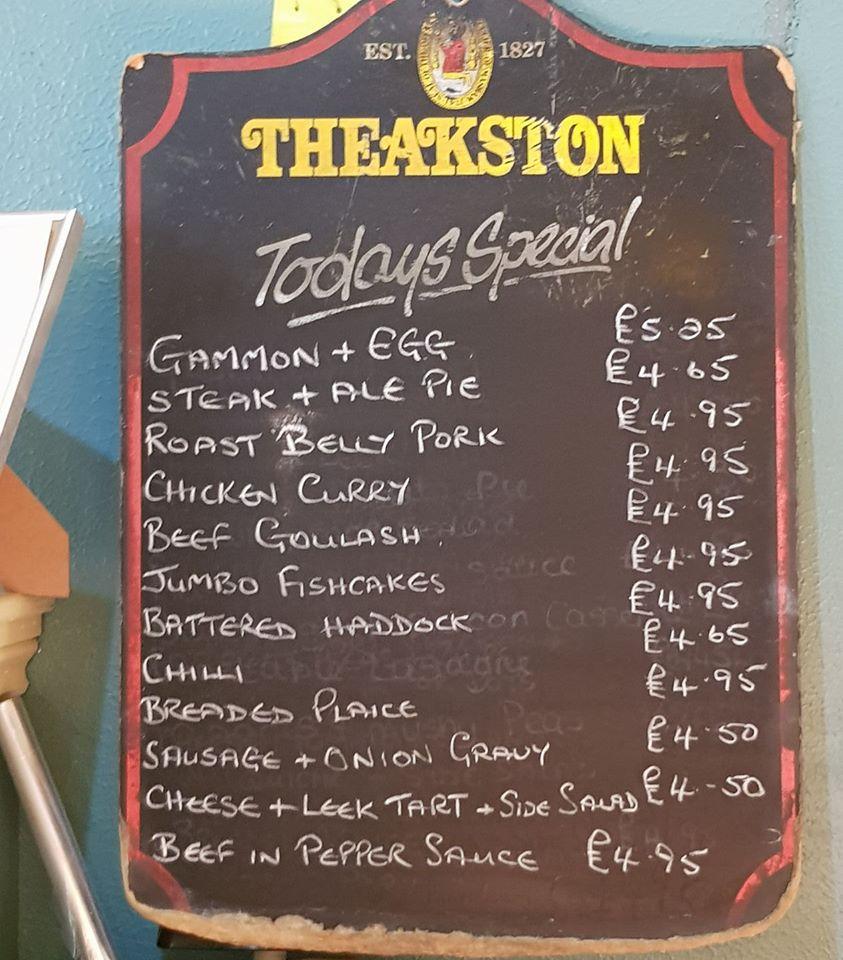 EST. 1827
THEAKSTON
Todays Special
GAMMON + EGG £5.25
STEAK + ALE PIE £4.65
ROAST BELLY PORK £4.95
CHICKEN CURRY £4.95
BEEF GOULASH. £4.95
JUMBO FISHCAKES £4.95
BATTERED HADDOCK £4.95
CHILLI £4.65
BREADED PLAICE £4.95
SAUSAGE + ONION GRAVY £4.50
CHEESE + LEEK TART + SIDE SALAD £4-50
BEEF IN PEPPER SAUCE £4.95